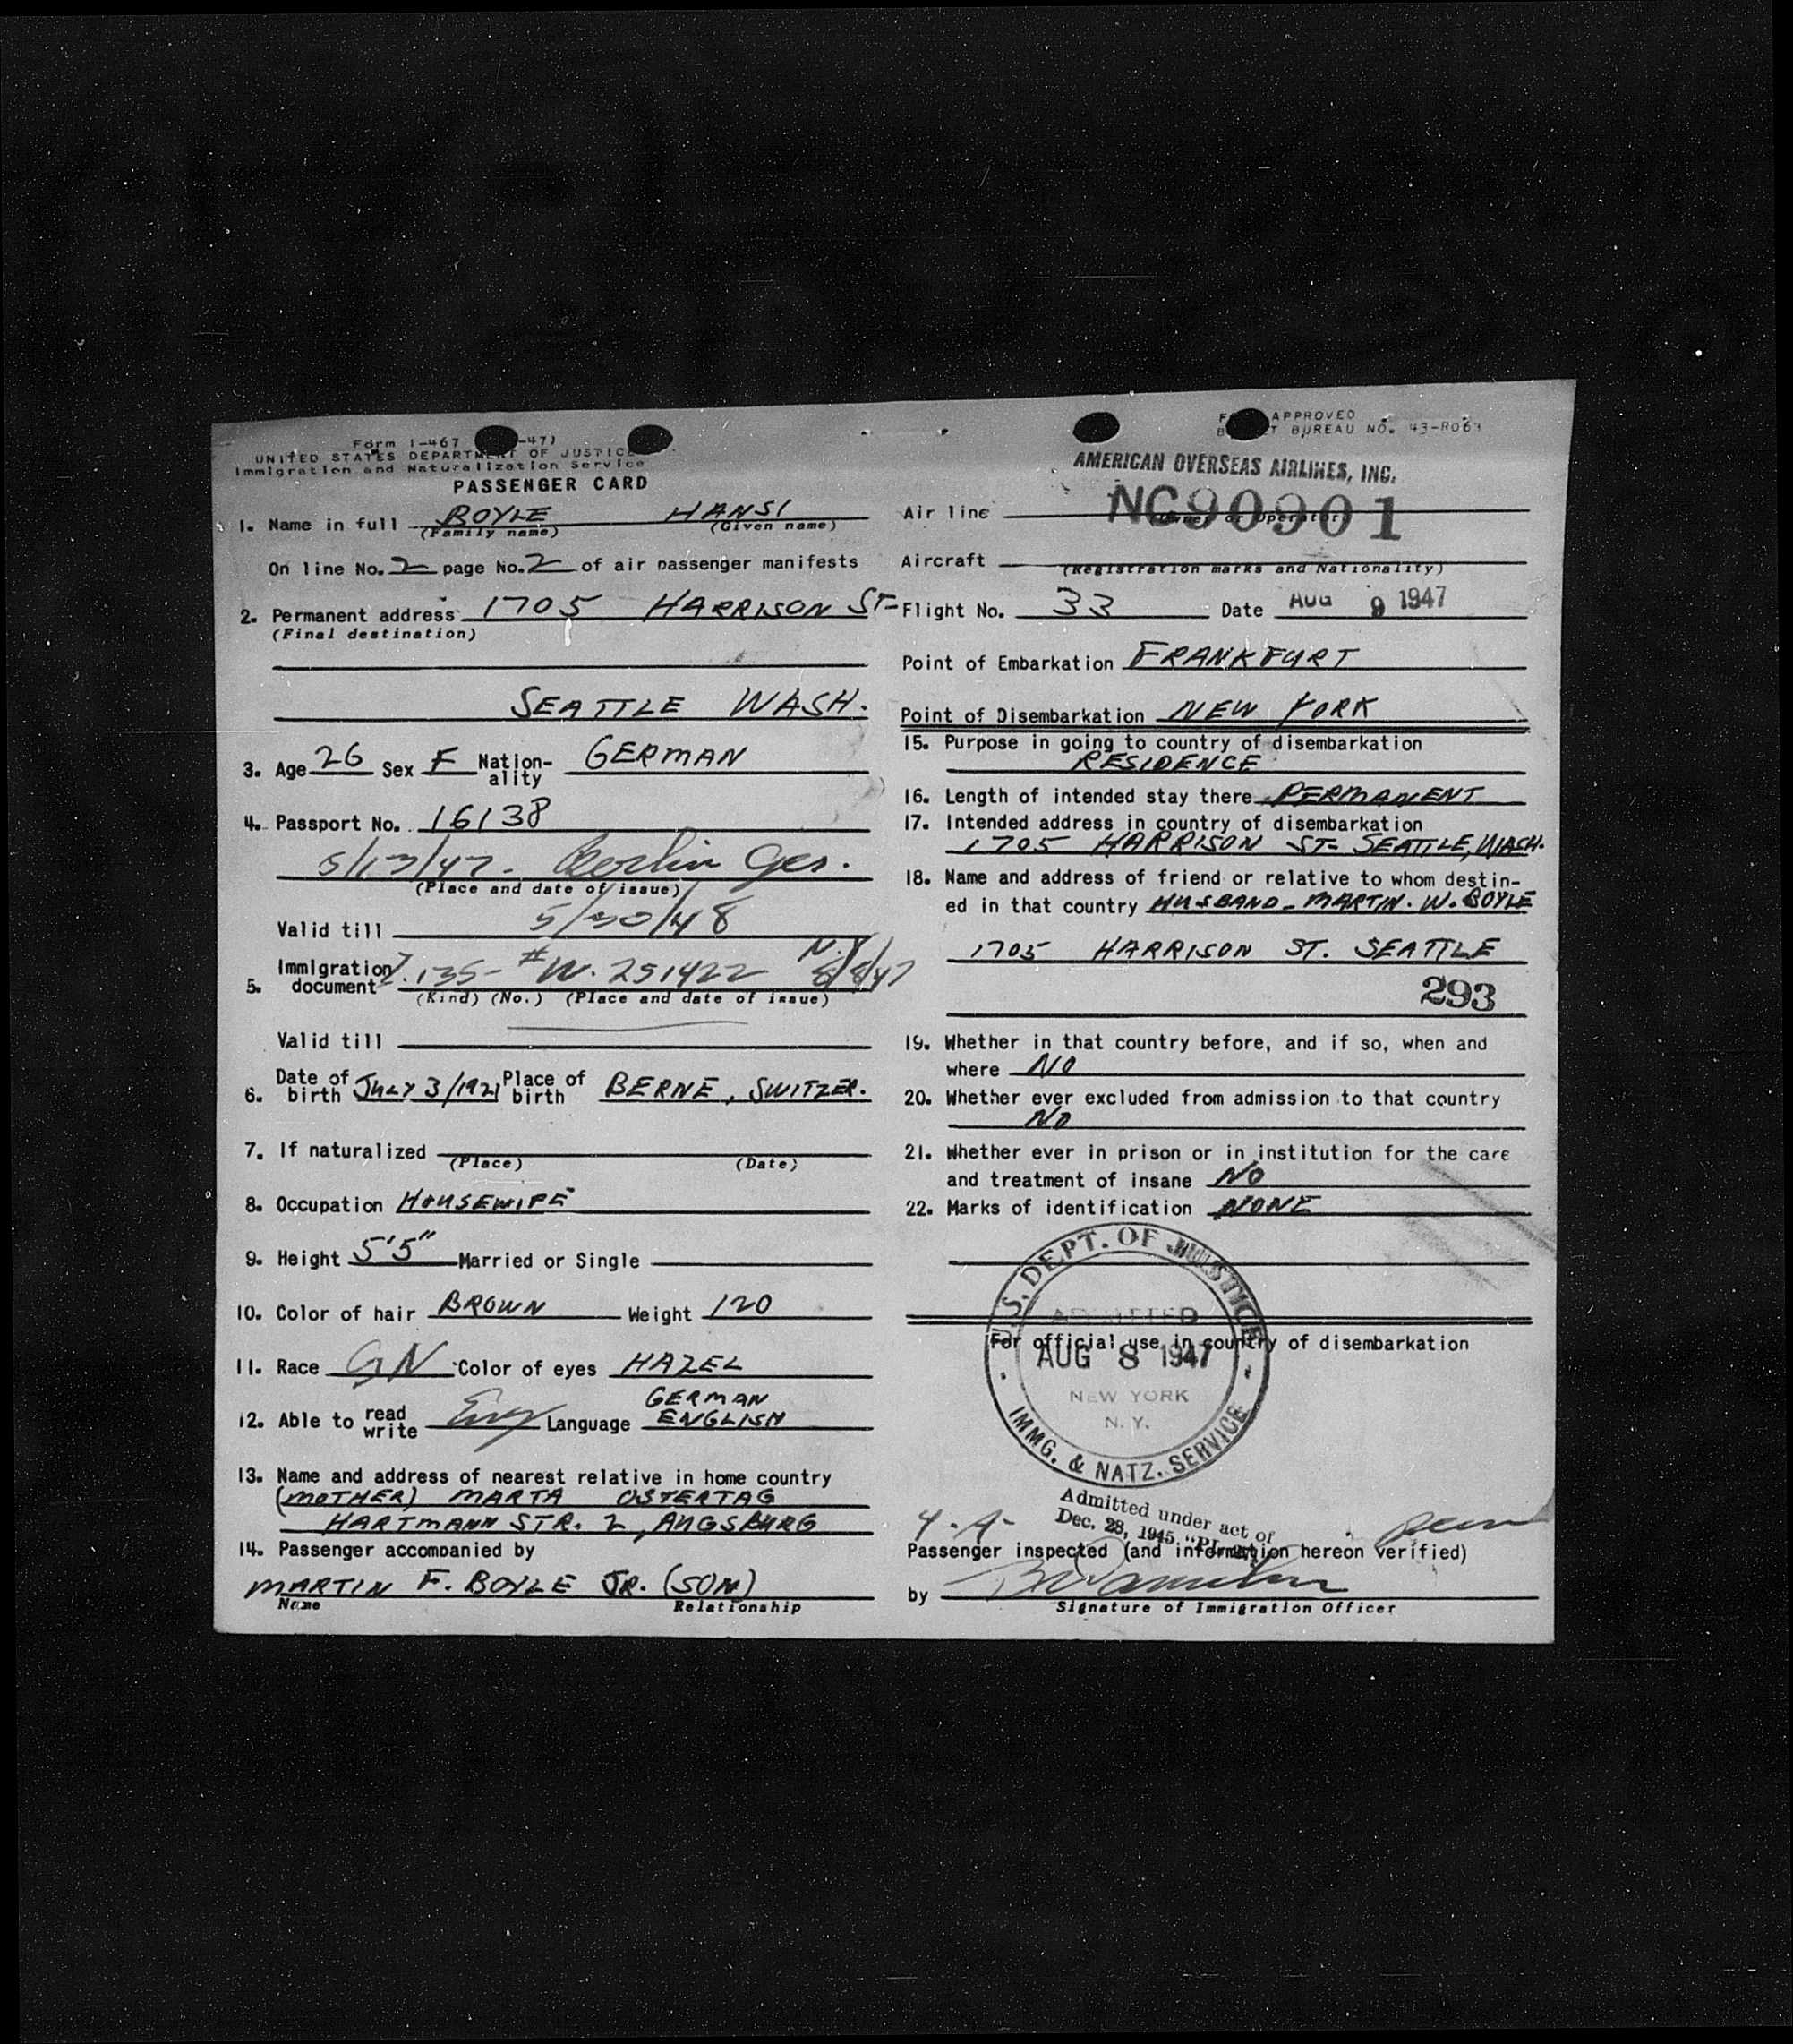 Form I-467 -47)
UNITED STATES DEPARTMENT OF JUSTICE
Immigration and Naturalization Service
PASSENGER CARD
1. Name in full BOYLE HANSI
(Family name) (Given name)
On line No. 2 page No. 2 of air passenger manifests
2. Permanent address 1705 HARRISON ST-
(Final destination)
SEATTLE WASH.
3. Age 26 Sex F Nation-ality GERMAN
4. Passport No. 16138
5/13/47 - Berlin Ger.
(Place and date of issue)
Valid till 5/30/48
5. Immigration document 135- #W. 251422 N.Y. 8/8/47
(Kind) (No.) (Place and date of issue)
Valid till
6. Date of birth JULY 3/1921 Place of birth BERNE, SWITZER.
7. If naturalized
(Place) (Date)
8. Occupation HOUSEWIFE
9. Height 5'5" Married or Single
10. Color of hair BROWN Weight 120
11. Race GN Color of eyes HAZEL
12. Able to read write Language GERMAN ENGLISH
13. Name and address of nearest relative in home country
(MOTHER) MARTA OSTERTAG
HARTMANN STR. 2, AUGSBURG
14. Passenger accompanied by
MARTIN F. BOYLE JR. (SON)
Name Relationship
APPROVED
BUREAU NO. 43-R063
AMERICAN OVERSEAS AIRLINES, INC.
Air line NC90901
(Owner or Operator)
Aircraft
(Registration marks and Nationality)
Flight No. 33 Date AUG 9 1947
Point of Embarkation FRANKFURT
Point of Disembarkation NEW YORK
15. Purpose in going to country of disembarkation
RESIDENCE
16. Length of intended stay there PERMANENT
17. Intended address in country of disembarkation
1705 HARRISON ST- SEATTLE, WASH.
18. Name and address of friend or relative to whom destin-
ed in that country HUSBAND - MARTIN. W. BOYLE
1705 HARRISON ST. SEATTLE
293
19. Whether in that country before, and if so, when and
where NO
20. Whether ever excluded from admission to that country
NO
21. Whether ever in prison or in institution for the care
and treatment of insane NO
22. Marks of identification NONE
U.S. DEPT. OF JUSTICE
ADMITTED
For official use in country of disembarkation
AUG 8 1947
NEW YORK
N. Y.
IMMG. & NATZ. SERVICE
Admitted under act of
Dec. 28, 1945
Passenger inspected (and information hereon verified)
by
Signature of Immigration Officer